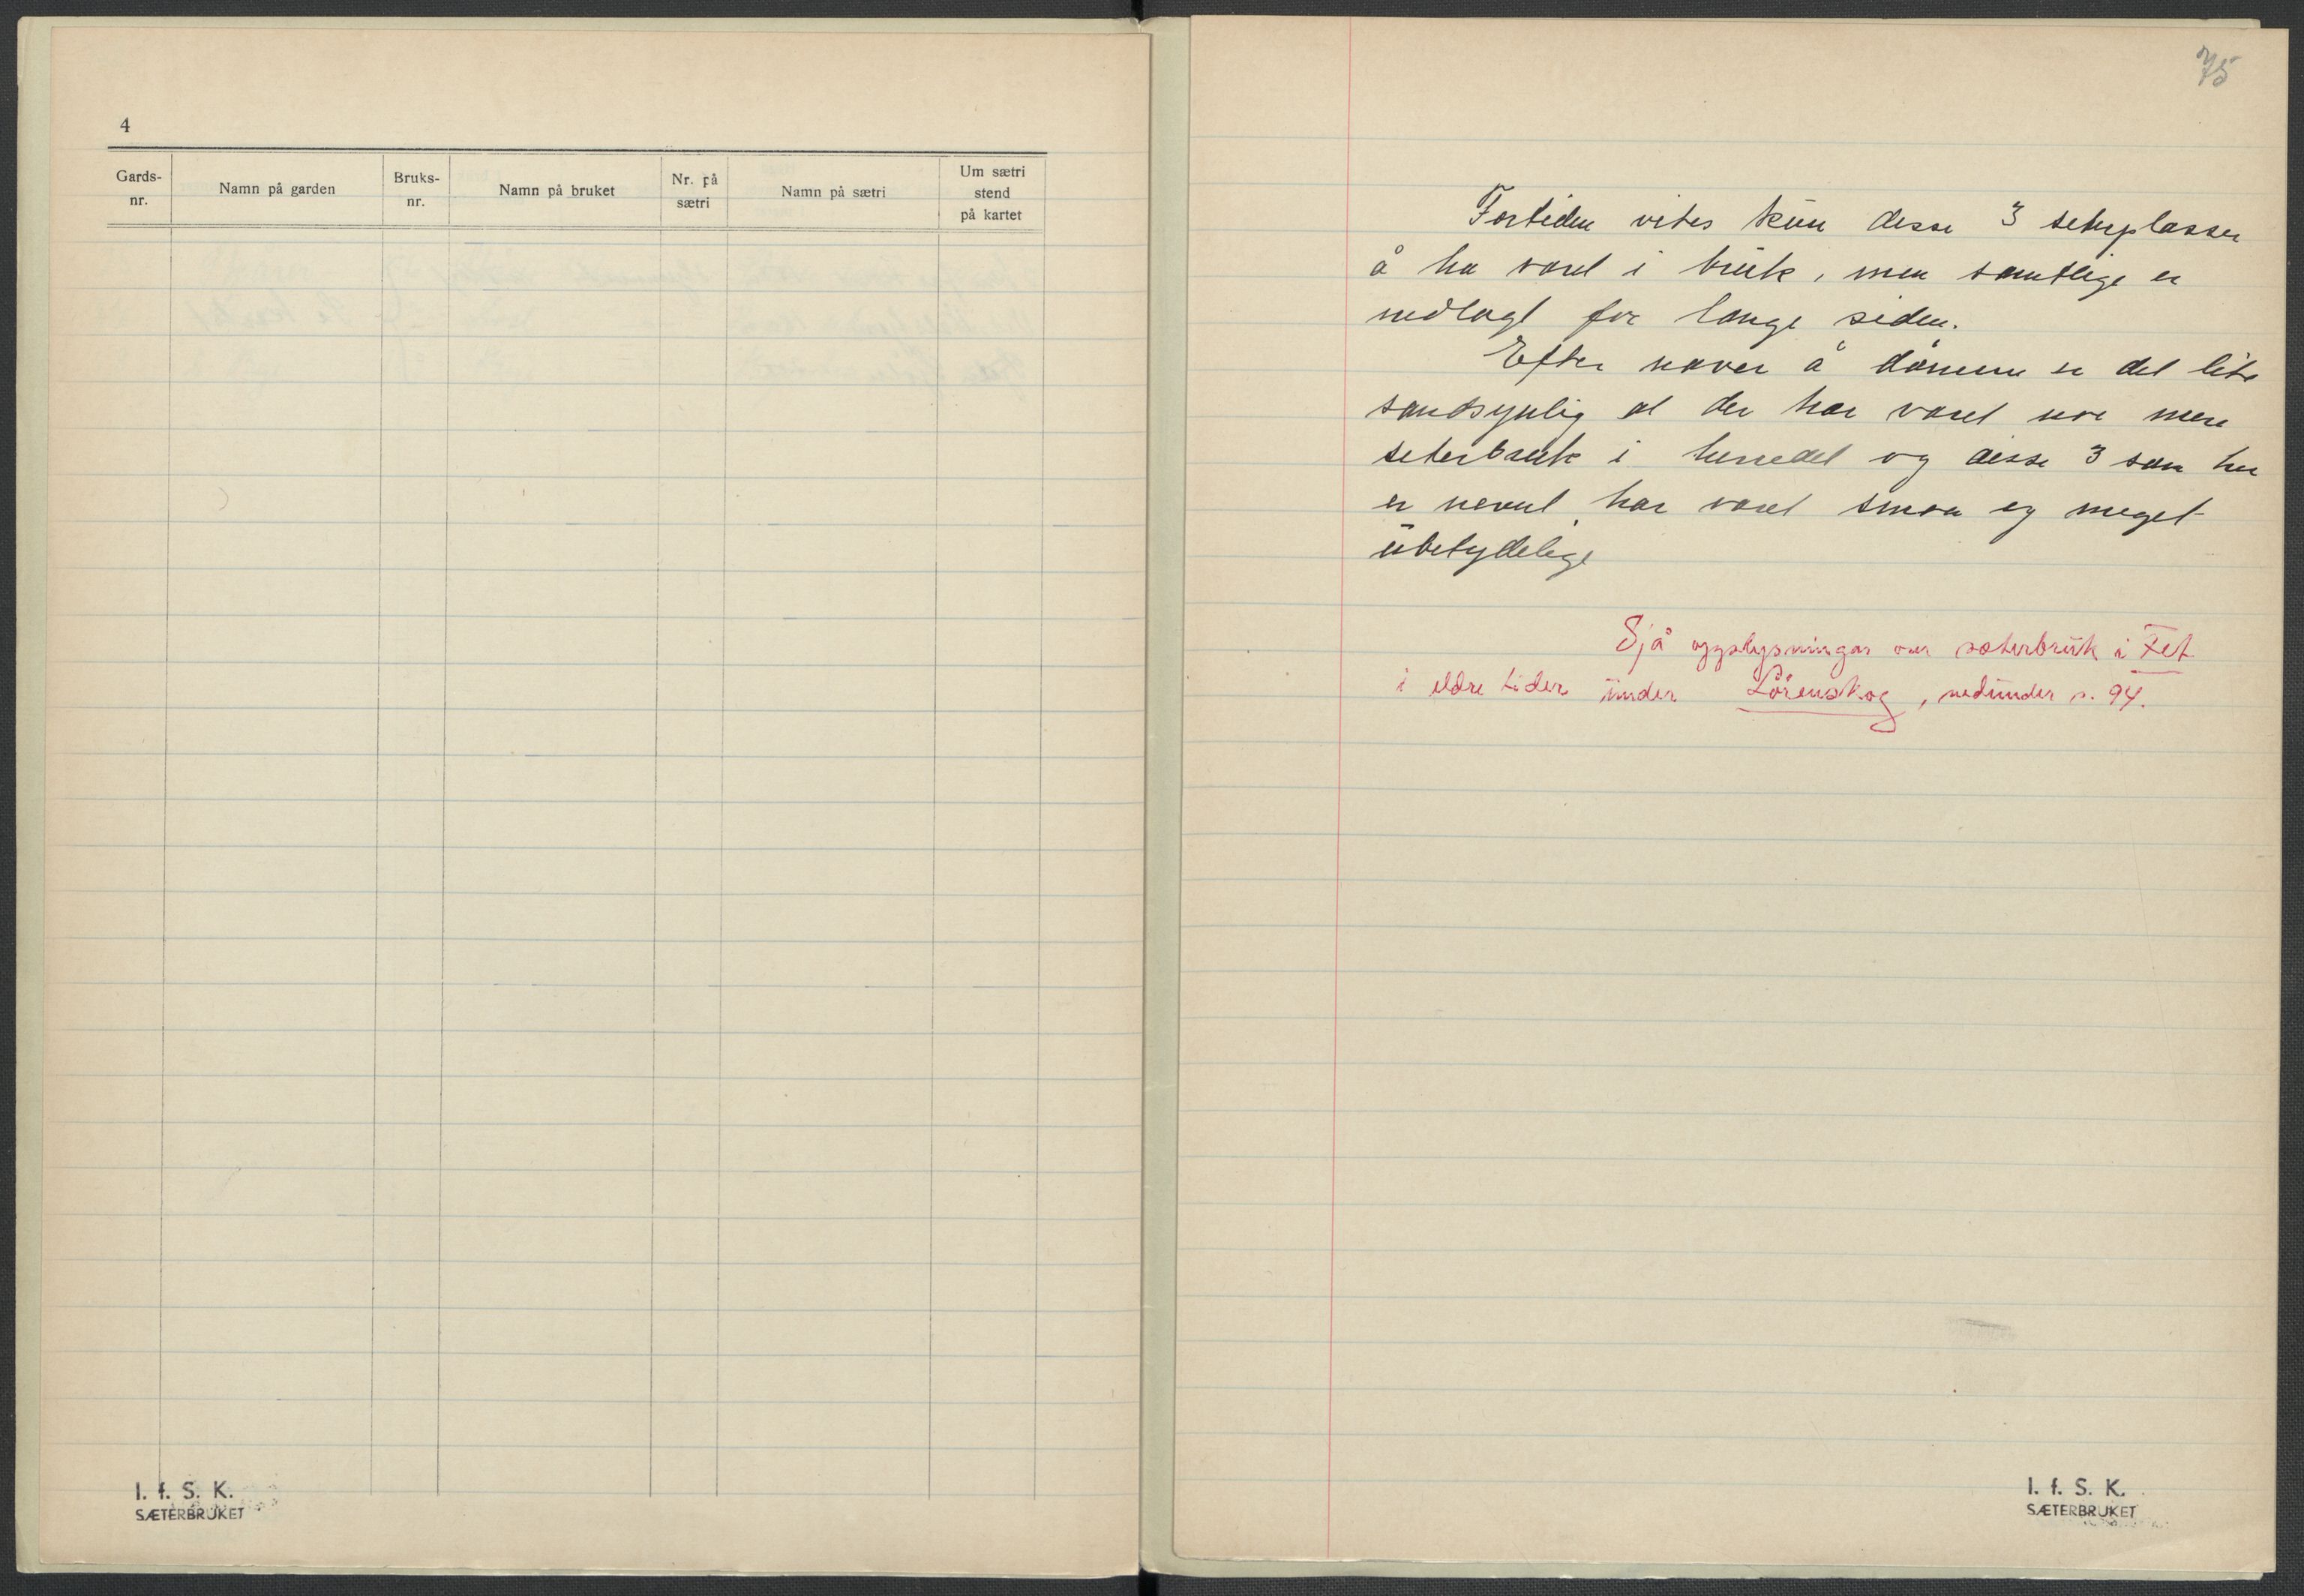 4
Gards-
nr.
Namn på garden
Bruks-
nr.
Namn på bruket
Nr. på
sætri
Namn på sætri
Um sætri
stend
på kartet
I. f. S. K.
SÆTERBRUKET
75
Fortiden vites kun disse 3 seterplasser
å ha været i bruk, men samtlige er
nedlagt for lenge siden.
Efter navn å dømme er det lite
sandsynlig at der har været noe mere
seterbruk i herredet og disse 3 som her
er nevnt har været smaa og meget
ubetydelige
Sjå upplysningar um sæterbruk i Fet
i eldre tider under Lörenskog, nedunder s. 94.
I. f. S. K.
SÆTERBRUKET